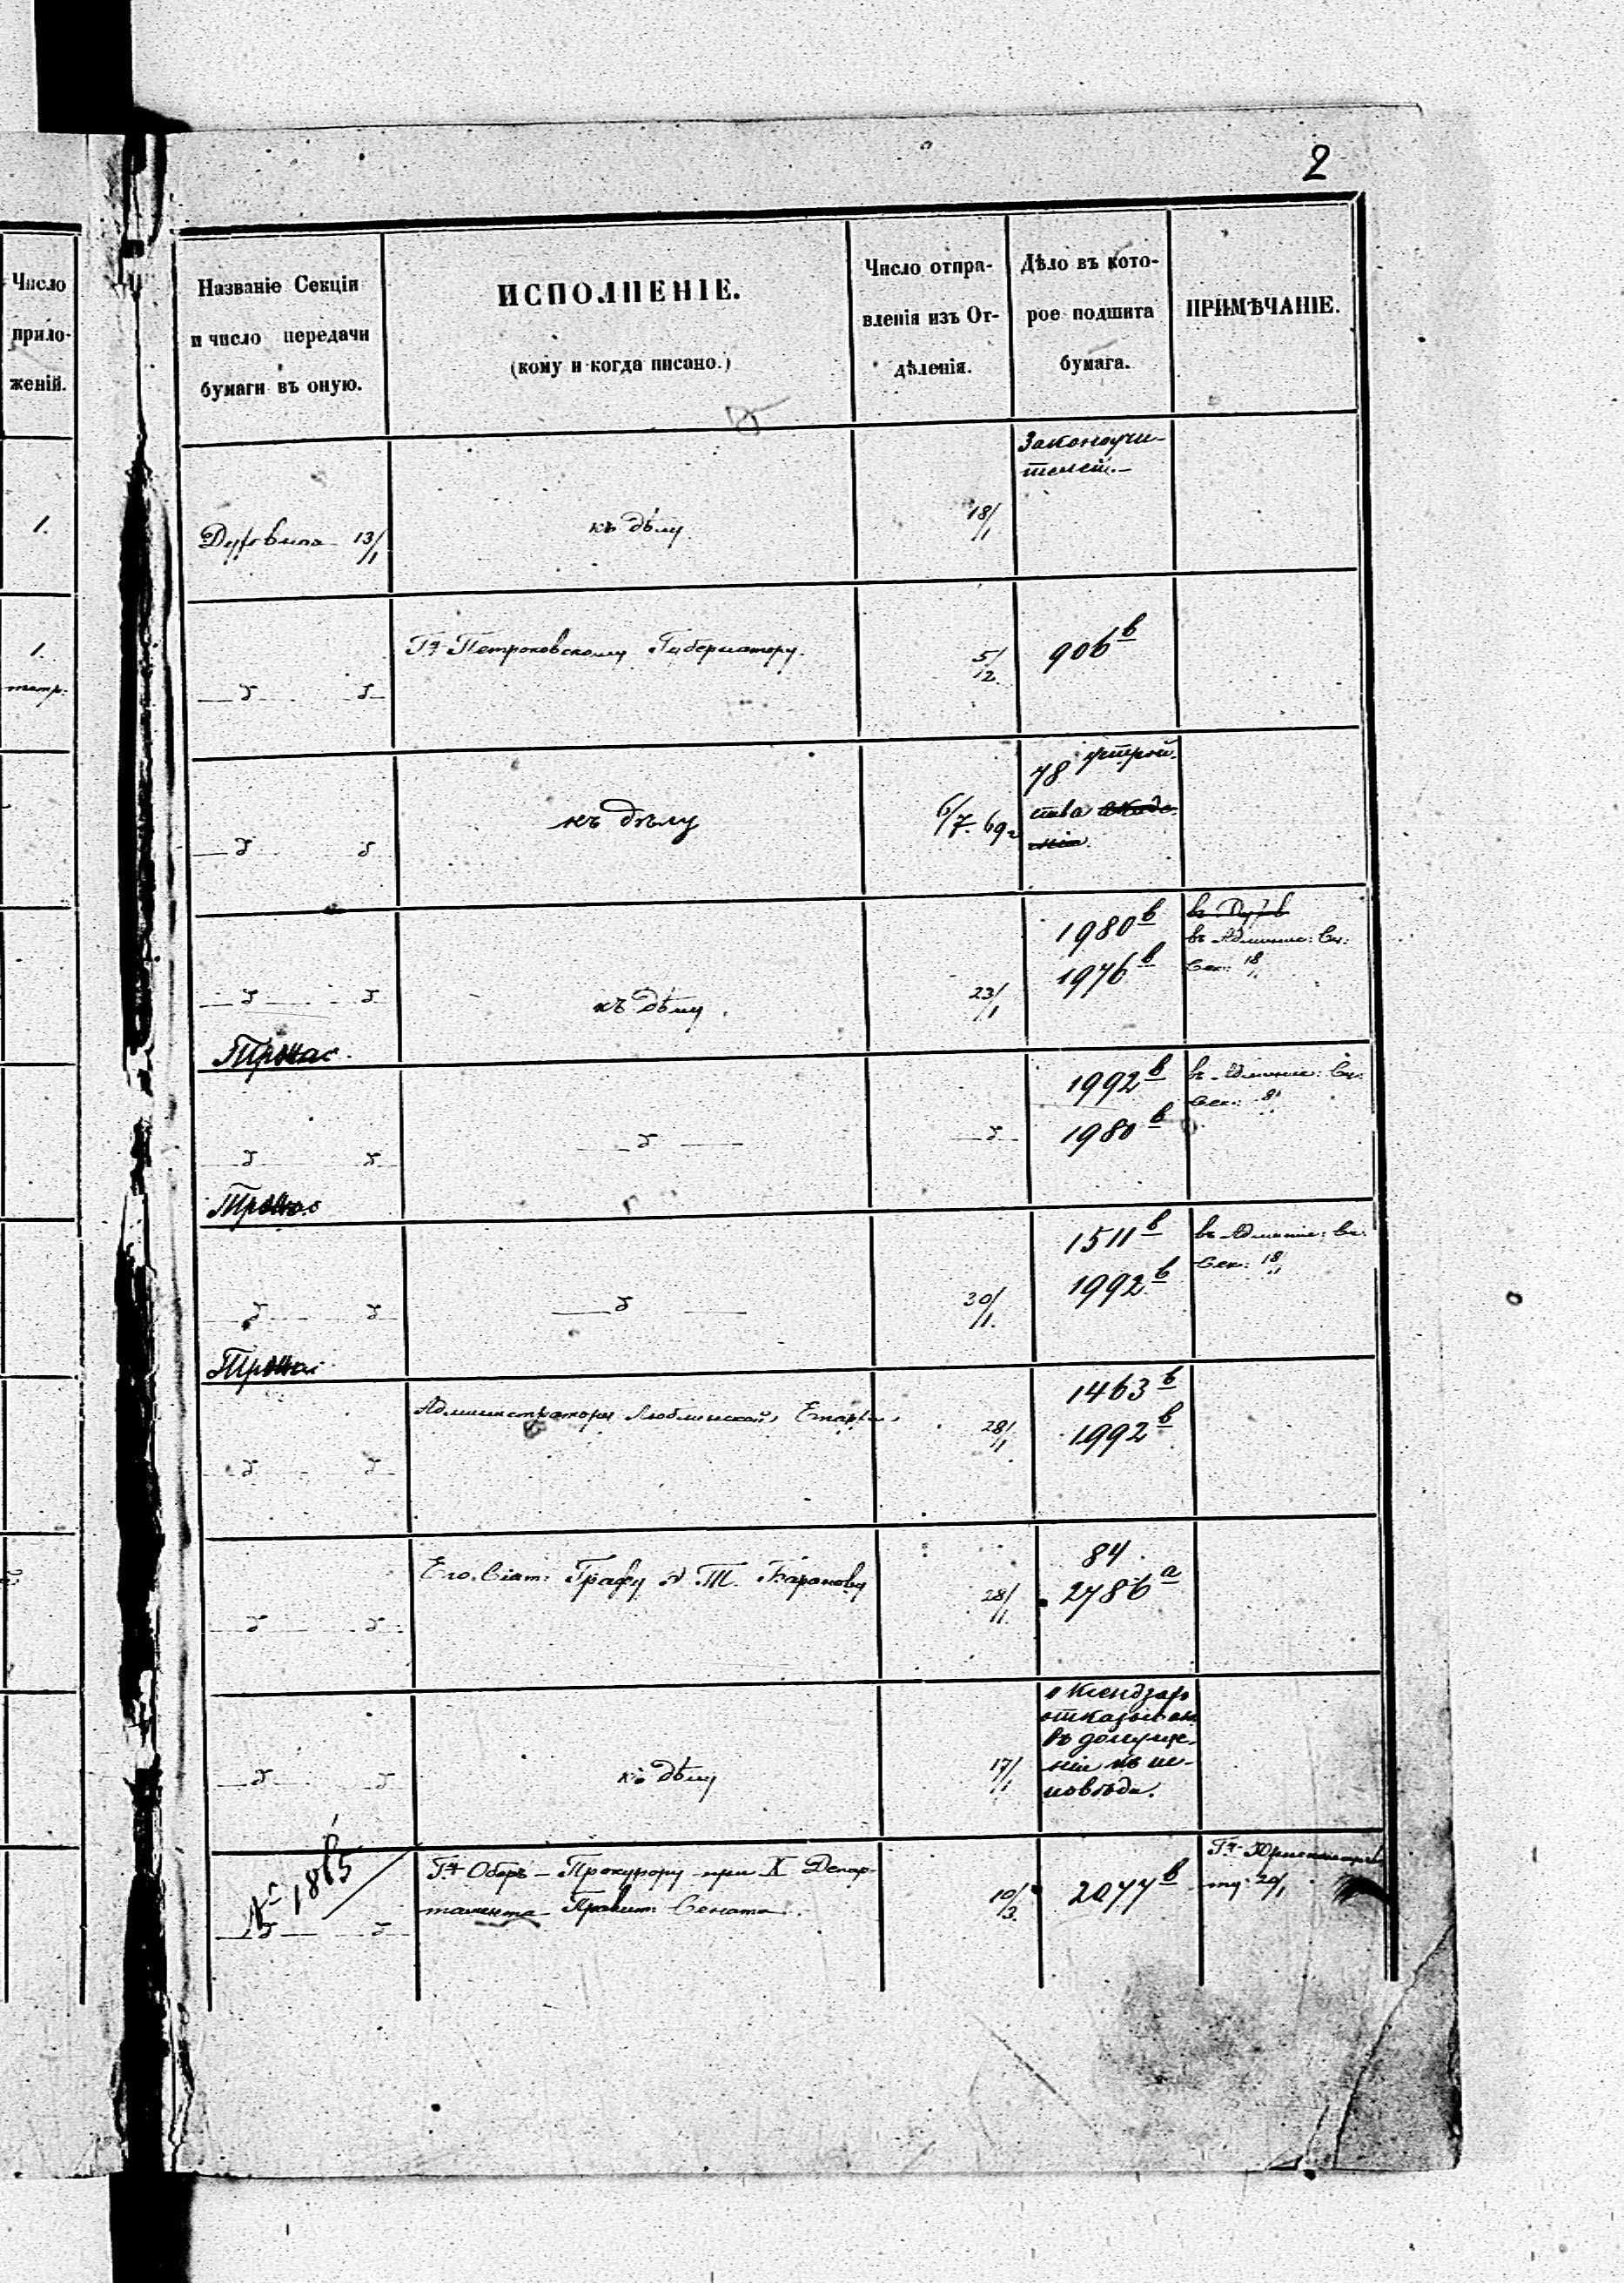 2
Число
прило-
женій.
Названіе Секціи
и число передачи
бумаги въ оную.
ИСПОЛНЕНІЕ.
(кому и когда писано.)
Число отпра-
вленія изъ От-
дѣленія.
Дѣло въ кото-
рое подшита
бумага.
ПРИМѢЧАНІЕ.
1.
Духовная 13/1
къ дѣлу
18/1
Законоучи-
телей.
1.
Гну Петроковскому Губернатору.
5/12
906 в
къ дѣлу
6/7 69 г
78 устрой-
ства
къ дѣлу
23/1
1980 в
1976 в
въ Админис:
Сек: 18/1
1992 в
1980 в
въ Админис:
Сек:
30/1
1511 в
1992 в
въ Админис:
Сек: 18
Администратору Люблинской Епархіи
28/1
1463 в
1992 в
Его Сіят: Графу Э. Т. Баранову
28/1
84
2786 а
къ дѣлу
17/1
о Ксендзахъ
въ допуще-
ніи къ ис-
повѣди.
№ 1865
Гну Оберъ-Прокурору при X Депар-
тамента Правит: Сената
10/3
2077 в
Гну Юрисконсуль
ту 20/1